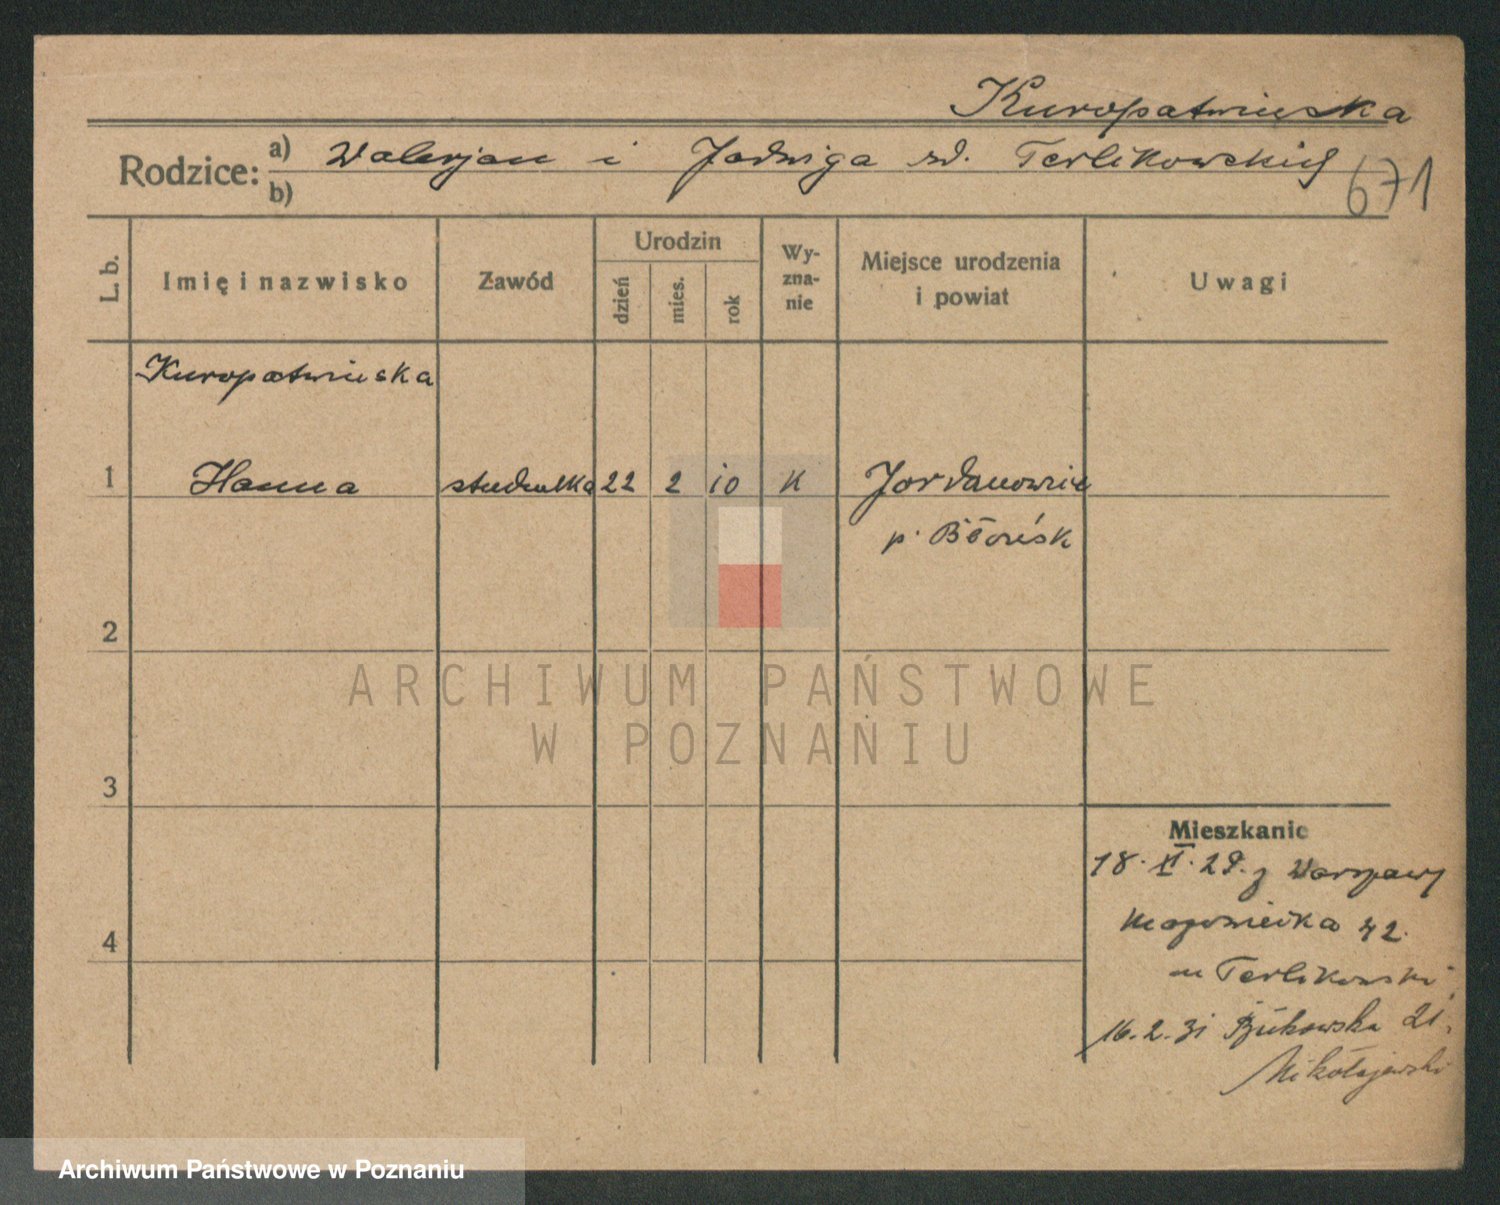 Kuropatwinska
Rodzice: a) Walerjan i Jadwiga zd. Terlikowskich
b)
671
L. b.
Imię i nazwisko
Zawód
Urodzin
dzień
mies.
rok
Wy-
zna-
nie
Miejsce urodzenia
i powiat
Uwagi
Kuropatwinska
1 Hanna studentka 22 2 10 K Jordanowice
p. Błońsk
2
ARCHIWUM PAŃSTWOWE
W POZNANIU
3
Mieszkanie
18. XI. 29. z Warszawy
42.
4
u Terlikowski
16. 2. 31 Bukowska 21.
Mikołajewski
Archiwum Państwowe w Poznaniu